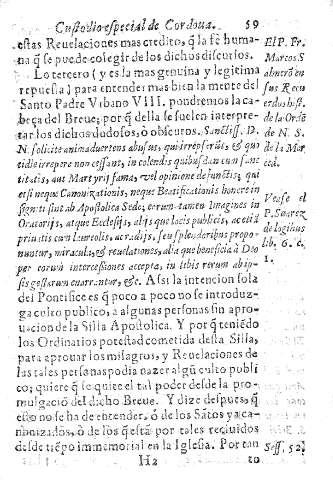 Custodio especial de Cordoua. 59
estas Reuelaciones mas credito, q̃ la fè huma-
na q̃ se puede colegir de los dichos discursos.
Lo tercero (y es la mas genuina y legitima
repuesta) para entender mas bien la mente del
Santo Padre Vrbano VIII. pondremos la ca-
beça del Breue; por q̃ della se suelen interpre-
tar los dichos dudosos, ò obscuros. Sanctiss. D.
N. sollicite animaduertens abusus, qui irrepserũt, & quo
tidie irrepere non cessant, in colendis quibusdam cum sanc
titatis, aut Martyrij fama, vel opinione defunctis; qui
etsi neque Canonizationis, neque Beatificationis honore in
signiti sint ab Apostolica Sede; eorum tamen Imagines in
Oratorijs, atque Ecclesijs, alijsque locis publicis, ac etiã
priuatis cum laureolis, ac radijs, seu splendoribus propo-
nuntur, miracula, & reuelationes, alia que beneficia à Deo
per eorum intercessiones accepta, in libris rerum ab ip-
sis gestarum enarrantur, &c. Assi la intencion sola
del Pontifice es q̃ poco a poco no se introduz-
ga culto publico, a algunas personas sin apro-
uacion de la Silla Apostolica. Y por q̃ teniẽdo
los Ordinarios potestad cometida desta Silla,
para aprouar los milagros, y Reuelaciones de
las tales personas podia nazer algũ culto publi
co; quiere q̃ se quite el tal poder desde la pro-
mulgacion del dicho Breue. Y dize despues, q̃
esto no se ha de entender, ò de los Sãtos ya ca-
nonizados, ò de los q̃ està por tales recuidos
desde tiẽpo immemorial en la Iglesia. Por tan
H2 to
El P. Fr.
Marcos S
en
sus Recu
erdos hist.
de la Ordẽ
de N. S.
de la Mer
ced.
Vease el
P. Suarez
de legibus
lib. 6. c.
1.
Sess. 52.